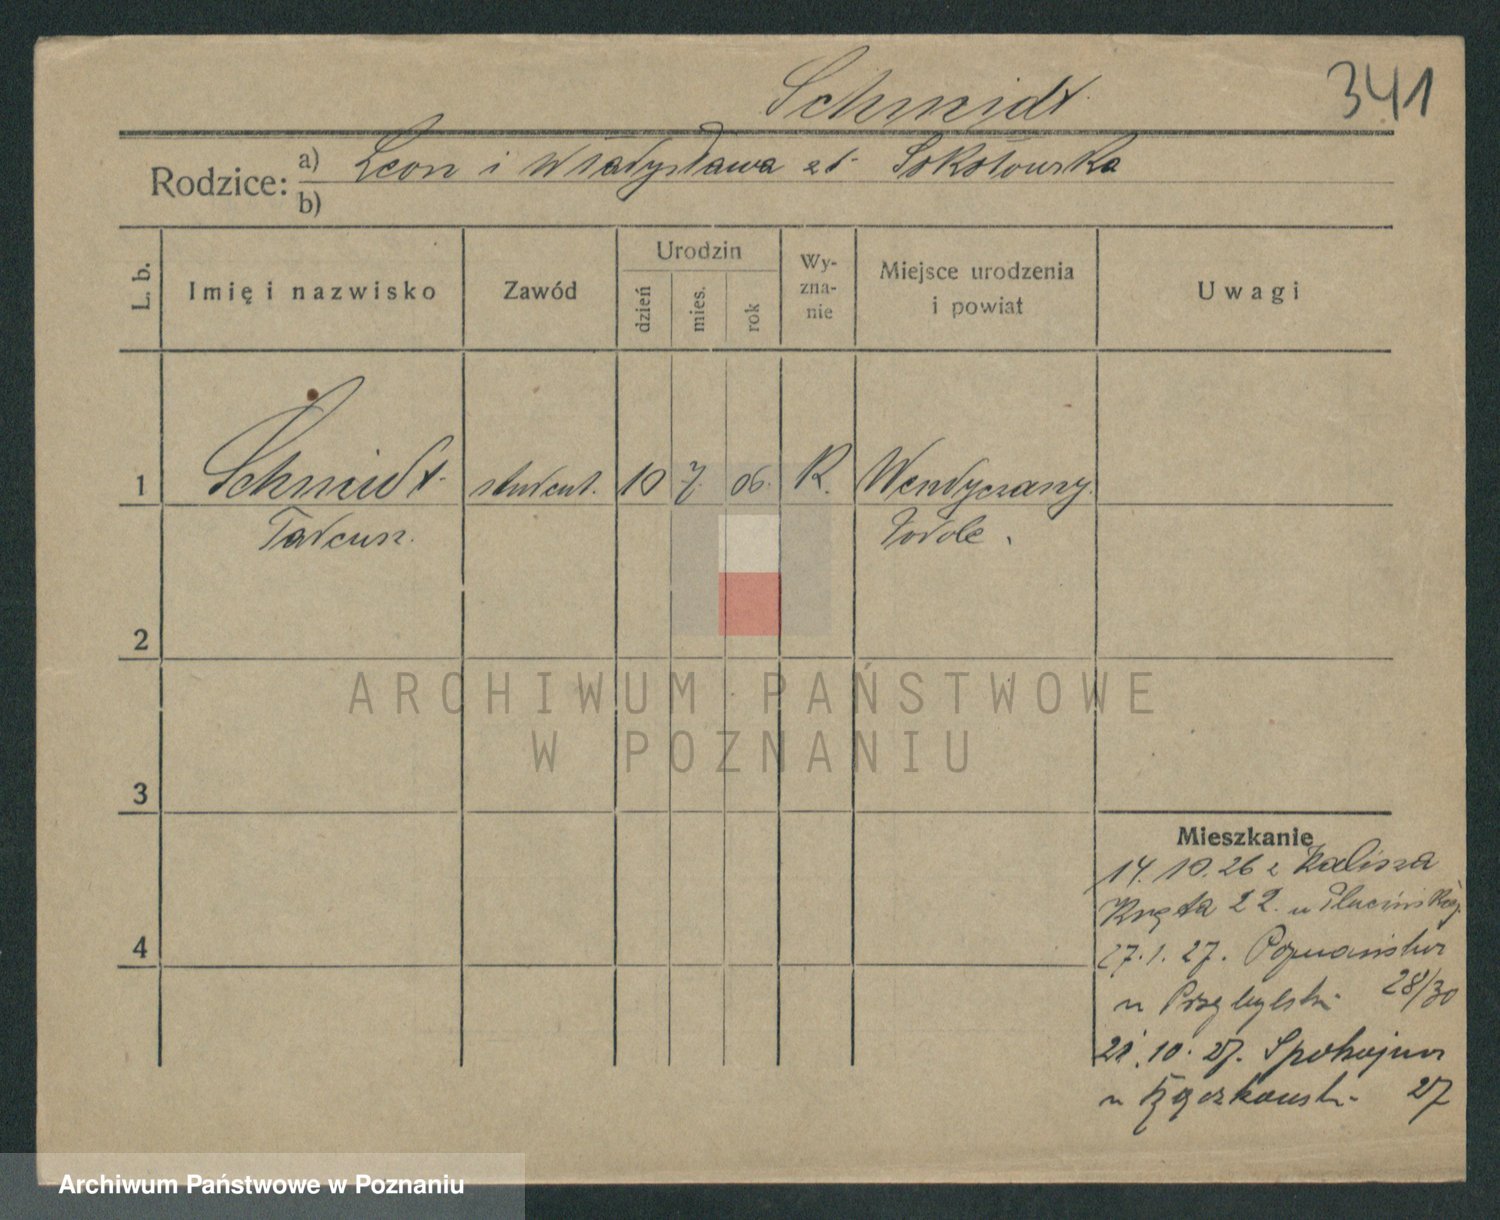 Schmidt
341
Rodzice: a) Leon i Władysława zd. Sokołowska
b)
L. b.
Imię i nazwisko
Zawód
Urodzin
dzień
mies.
rok
Wy-
zna-
nie
Miejsce urodzenia
i powiat
Uwagi
1 Schmidt student. 10 7. 06. R. Wendyczany.
Tadeusz. Podole.
2
3
4
Mieszkanie
14.10.26 z Kalisza
Kręta 22. u
27.1.27. Poznańska
u Przybylski 28/30
21.10.27. Spokojna
u 27
ARCHIWUM PAŃSTWOWE
W POZNANIU
Archiwum Państwowe w Poznaniu